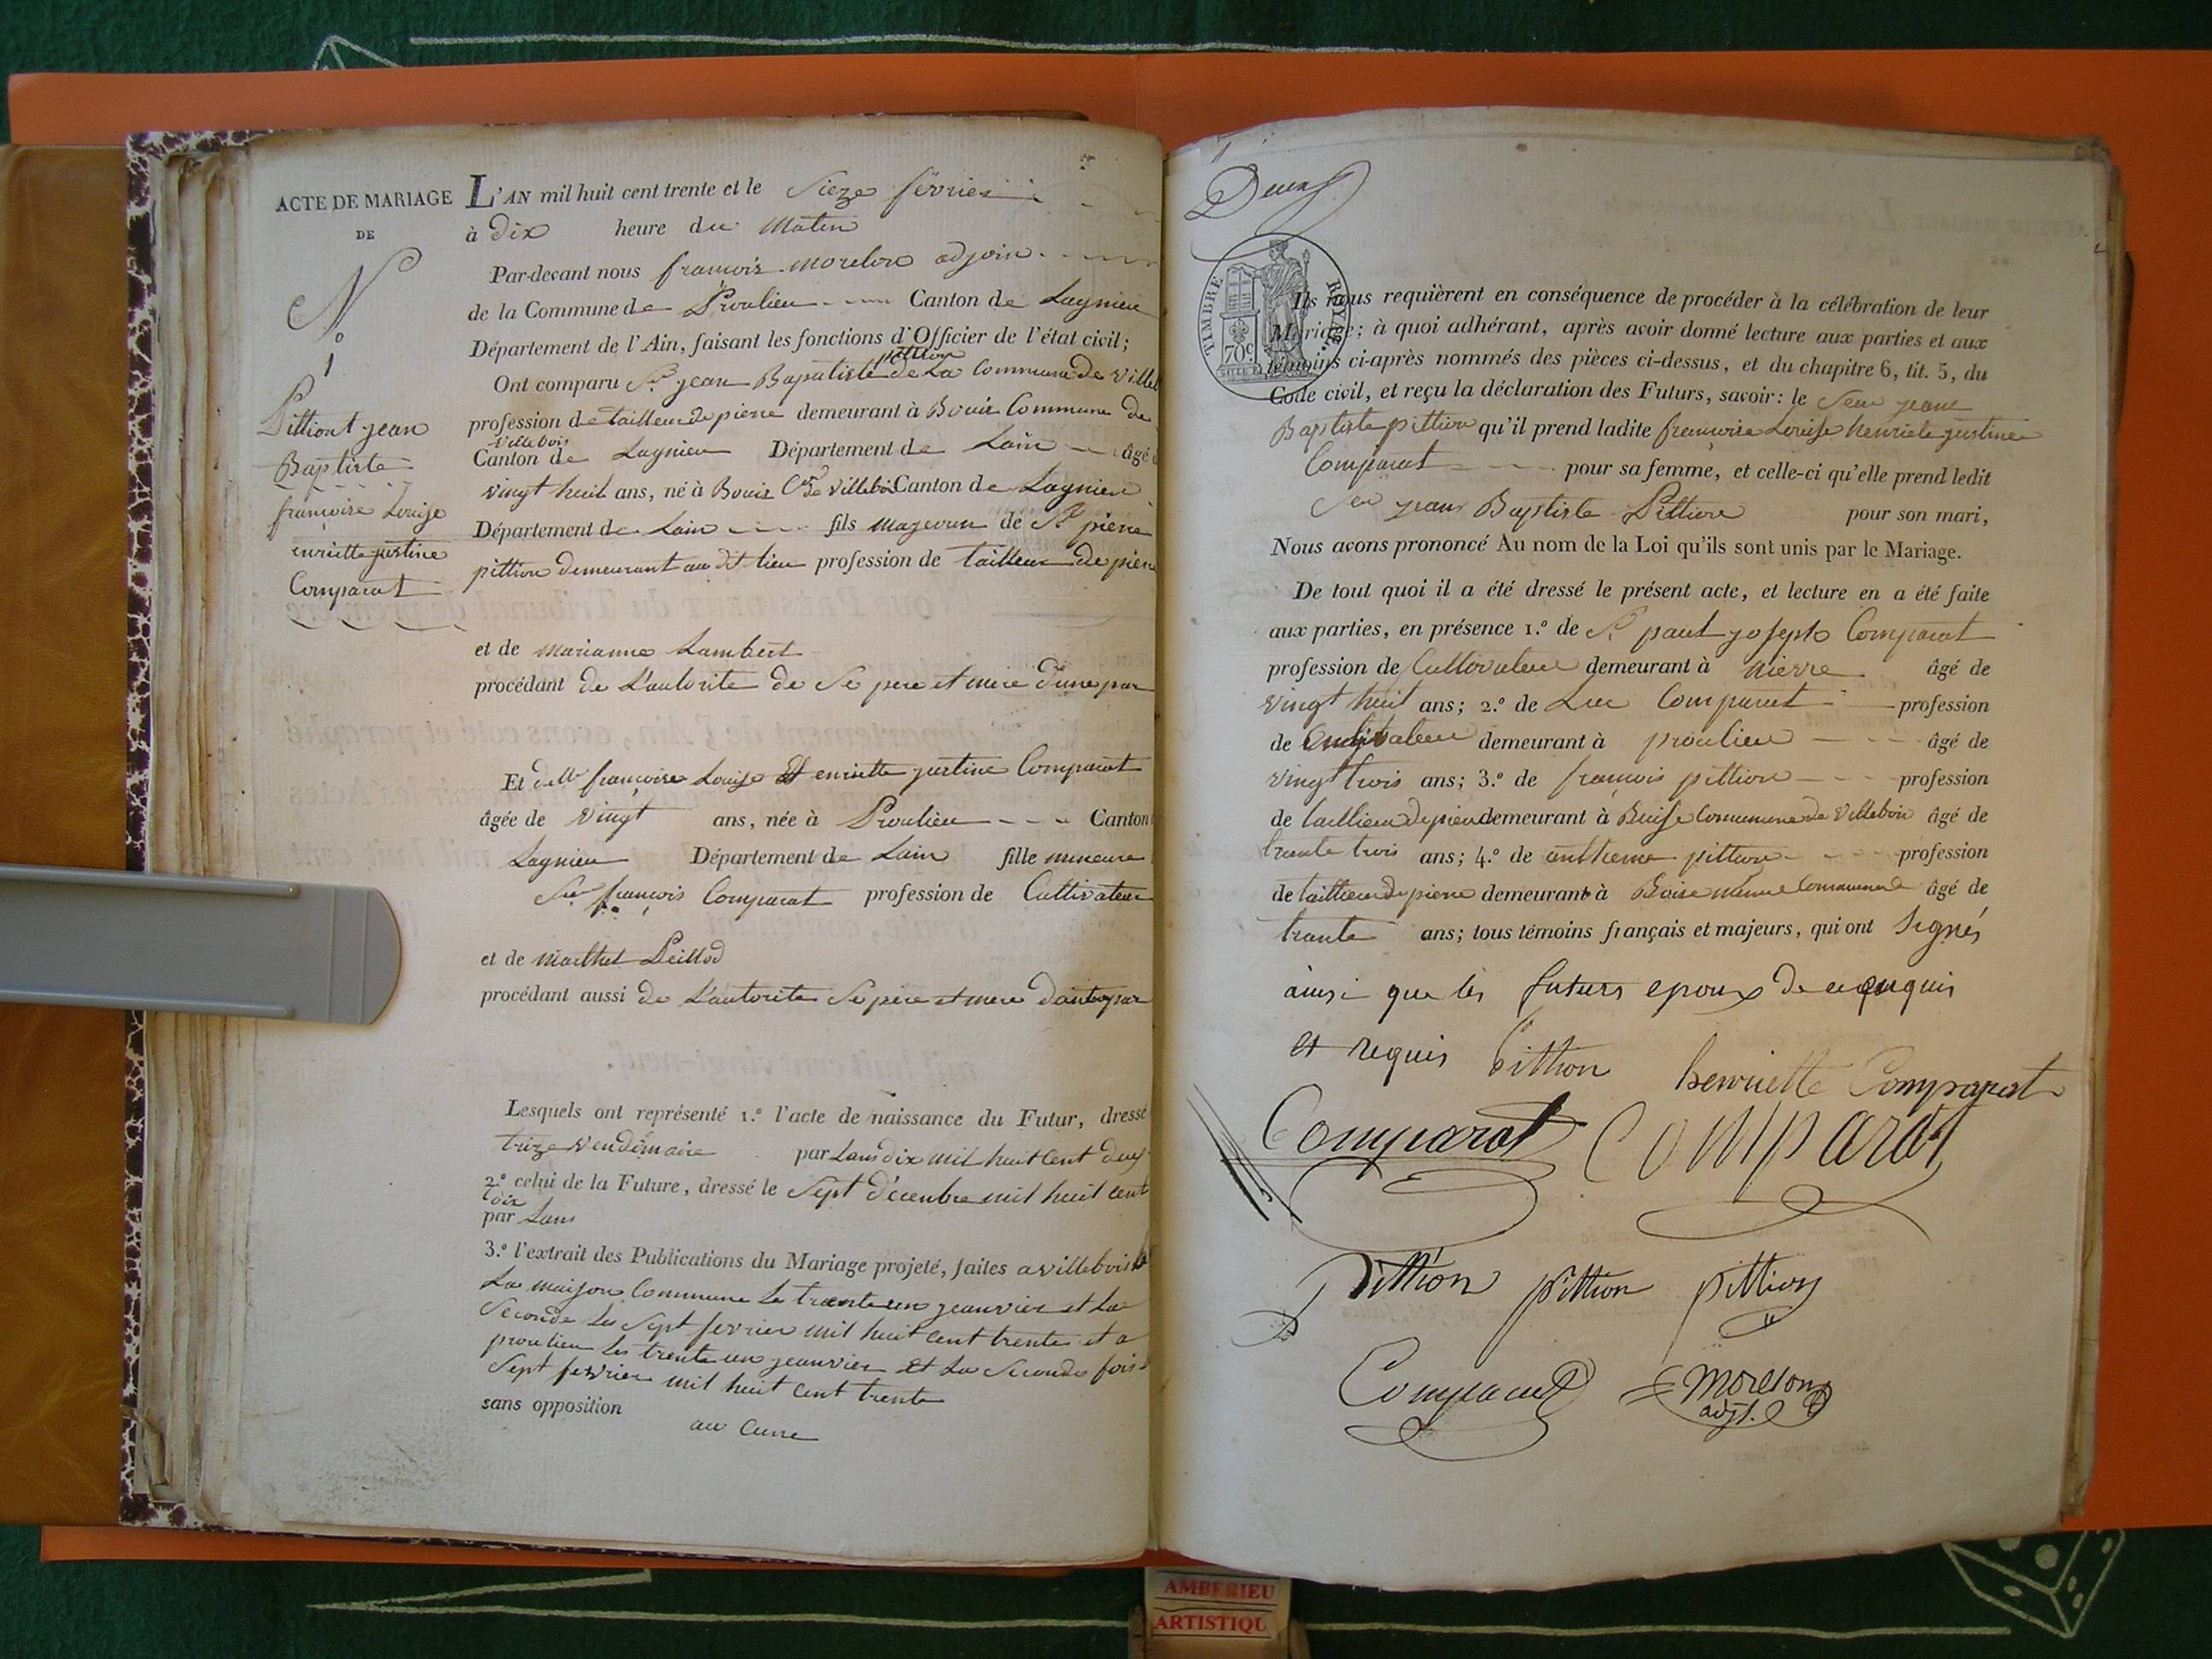 ACTE DE MARIAGE
DE
N.o
1
Pittiont jean
Baptiste
françoise Louise
enriette justine
Comparat
L'AN mil huit cent trente et le Sieze fevrier
à dix heure du Matin
Par-devant nous francois morelon adjoin
de la Commune de Proulieu Canton de Lagnieu
Département de l'Ain, faisant les fonctions d'Officier de l'état civil;
pittion
Ont comparu Sr jean Baptiste de La Commune de Villeb
profession de tailleur de pierre demeurant à Bouis Commune de
villebois
Canton de Lagnieu Département de Lain âgé
vingt huit ans, né à Bouis Cne de villebois Canton de Lagnieu
Département de Lain fils mageur de Sr pierre
pittion demeurant au dit lieu profession de tailleur de pierre
et de marianne Lambert
procédant de L'autorite de Se pere et mere d'une par
Et delle françoise Louise et enriette justine Comparat
âgée de vingt ans, née à Proulieu Canton
Lagnieu Département de Lain fille mineure
Sr françois Comparat profession de Cultivateur
et de Marthet Peillod
procédant aussi de L'autorite Se père et mere d'autre par
Lesquels ont représenté 1.o l'acte de naissance du Futur, dressé
trize vendémaire par Lans dix mil huit Cent deux
2.o celui de la Future, dressé le Sept décembre mil huit cent
dix
par Lans
3.o l'extrait des Publications du Mariage projeté, faites a villebois
La maison Commune Le trente un jeanvier et La
Seconde Les Sept fevrier mil huit cent trente et a
proulieu Les trente un jeanvier et La Seconde fois
Sept fevrier mil huit cent trente
sans opposition
au cune
Deux
TIMBRE ROYAL
70c
Ils nous requièrent en conséquence de procéder à la célébration de leur
Mariage; à quoi adhérant, après avoir donné lecture aux parties et aux
témoins ci-après nommés des pièces ci-dessus, et du chapitre 6, tit. 5, du
Code civil, et reçu la déclaration des Futurs, savoir: le Seur jean
Baptiste pittion qu'il prend ladite françoise Louise henriete justine
Comparat pour sa femme, et celle-ci qu'elle prend ledit
Sr jean Baptiste Pittion pour son mari,
Nous avons prononcé Au nom de la Loi qu'ils sont unis par le Mariage.
De tout quoi il a été dressé le présent acte, et lecture en a été faite
aux parties, en présence 1.o de Sr paul joseph Comparat
profession de Cultivateur demeurant à nierre âgé de
vingt huit ans; 2.o de Luc Comparat profession
de Cultivateur demeurant à proulieu âgé de
vingt trois ans; 3.o de françois pittion profession
de taillieur de pierre demeurant à Buise Commune de Villebois âgé de
trante trois ans; 4.o de antheme pittion profession
de taillieur de pierre demeurant à Boise même Commune âgé de
trante ans; tous témoins français et majeurs, qui ont Signés
ainsi que les futurs epoux de ce enquis
et requis Pittion henriette Comparat
Comparat COMPARAT
Pittion pittion pittion
Comparat Morelon
adjt.
AMBERIEU
ARTISTIQU